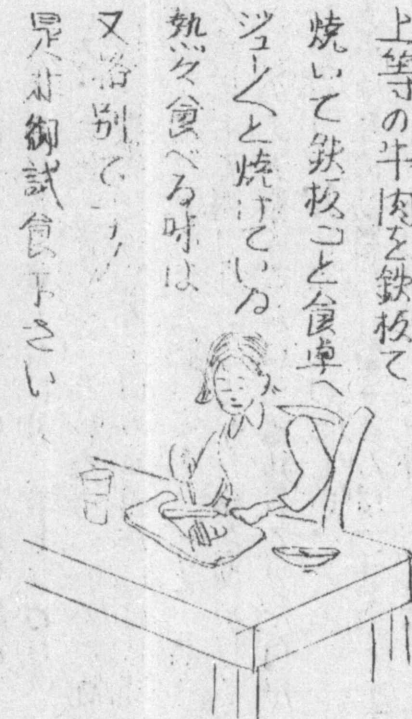 上等の牛肉を鉄板で
焼いて鉄板ごと食卓へ
ジュー〱と焼けている
熱々食べる味は
又格別です
是非御試食下さい